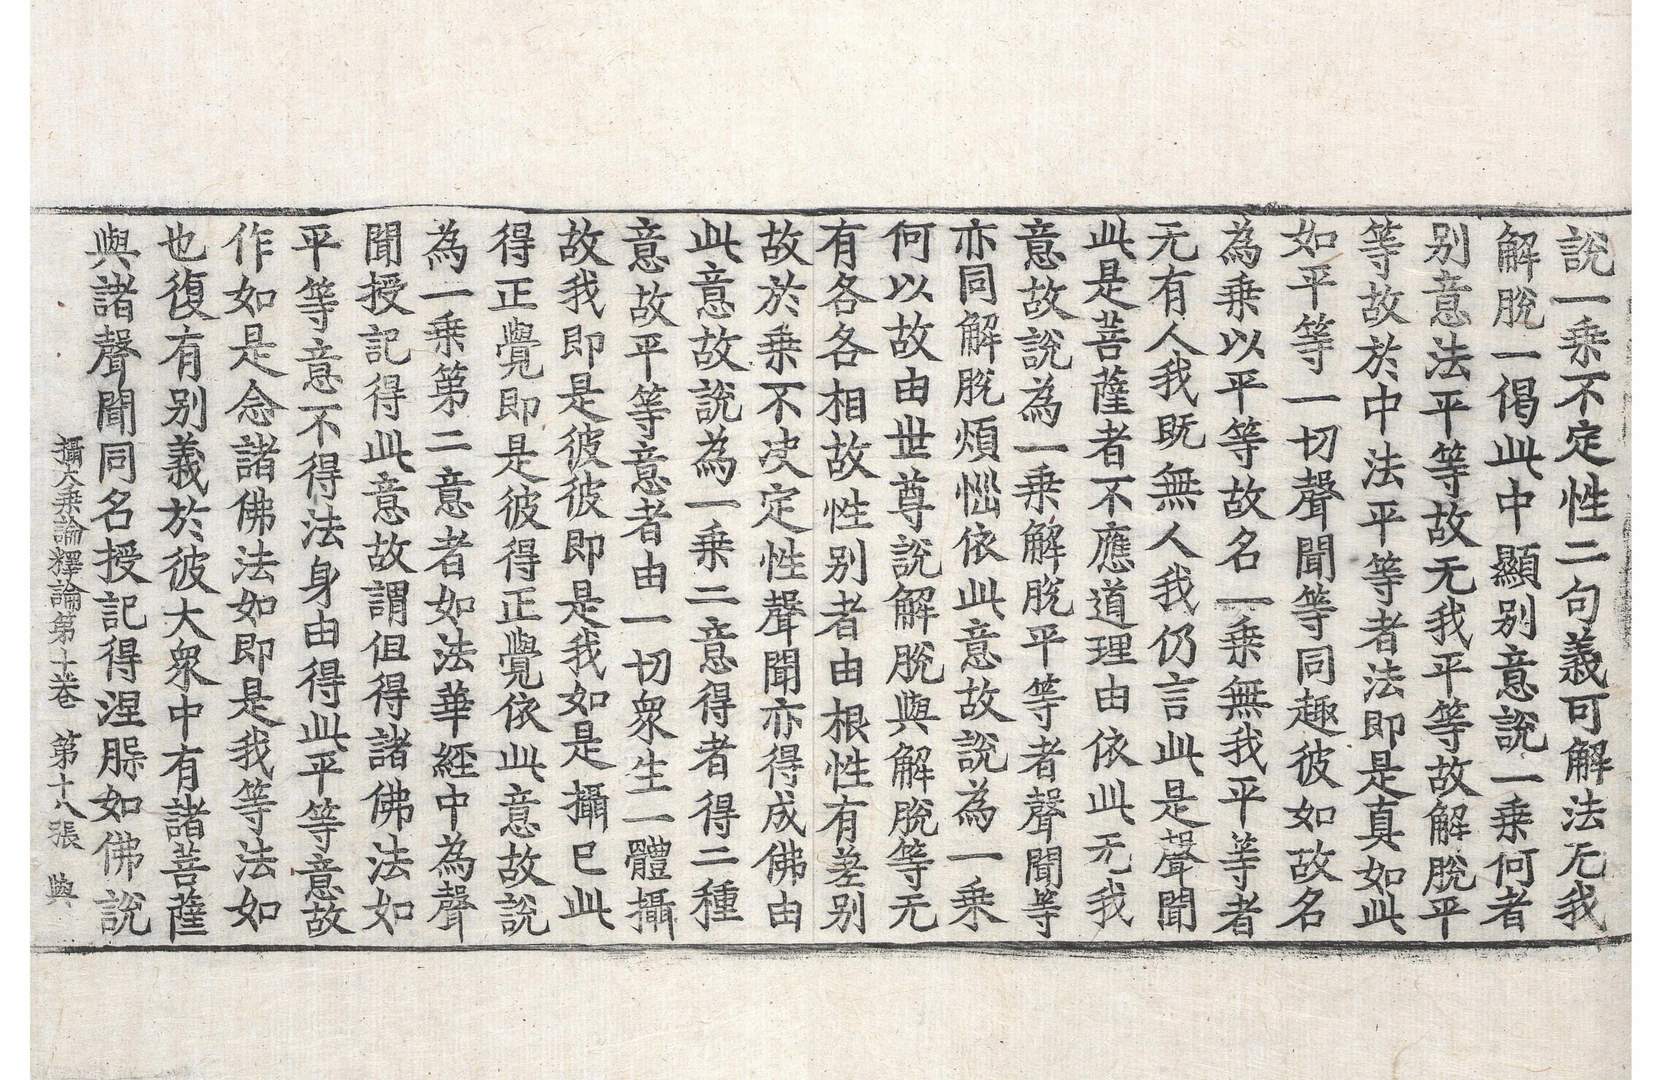 說一乗不定性二句義可解法无我
解脫一偈此中顯別意說一乗何者
别意法平等故无我平等故解脫平
等故於中法平等者法即是真如此
如平等一切聲聞等同趣彼如故名
為乗以平等故名一乗無我平等者
无有人我既無人我仍言此是聲聞
此是菩薩者不應道理由依此无我
意故說為一乗解脫平等者聲聞等
亦同解脫煩惱依此意故說為一乗
何以故由世尊說解脫與解脫等无
有各各相故性别者由根性有差别
故於乗不决定性聲聞亦得成佛由
此意故說為一乗二意得者得二種
意故平等意者由一切眾生一體攝
故我即是彼彼即是我如是攝已此
得正覺即是彼得正覺依此意故說
為一乗第二意者如法華經中為聲
聞授記得此意故謂但得諸佛法如
平等意不得法身由得此平等意故
作如是念諸佛法如即是我等法如
也復有别義於彼大眾中有諸菩薩
與諸聲聞同名授記得涅槃如佛說
攝大乗論釋論第十卷 第十八張 與